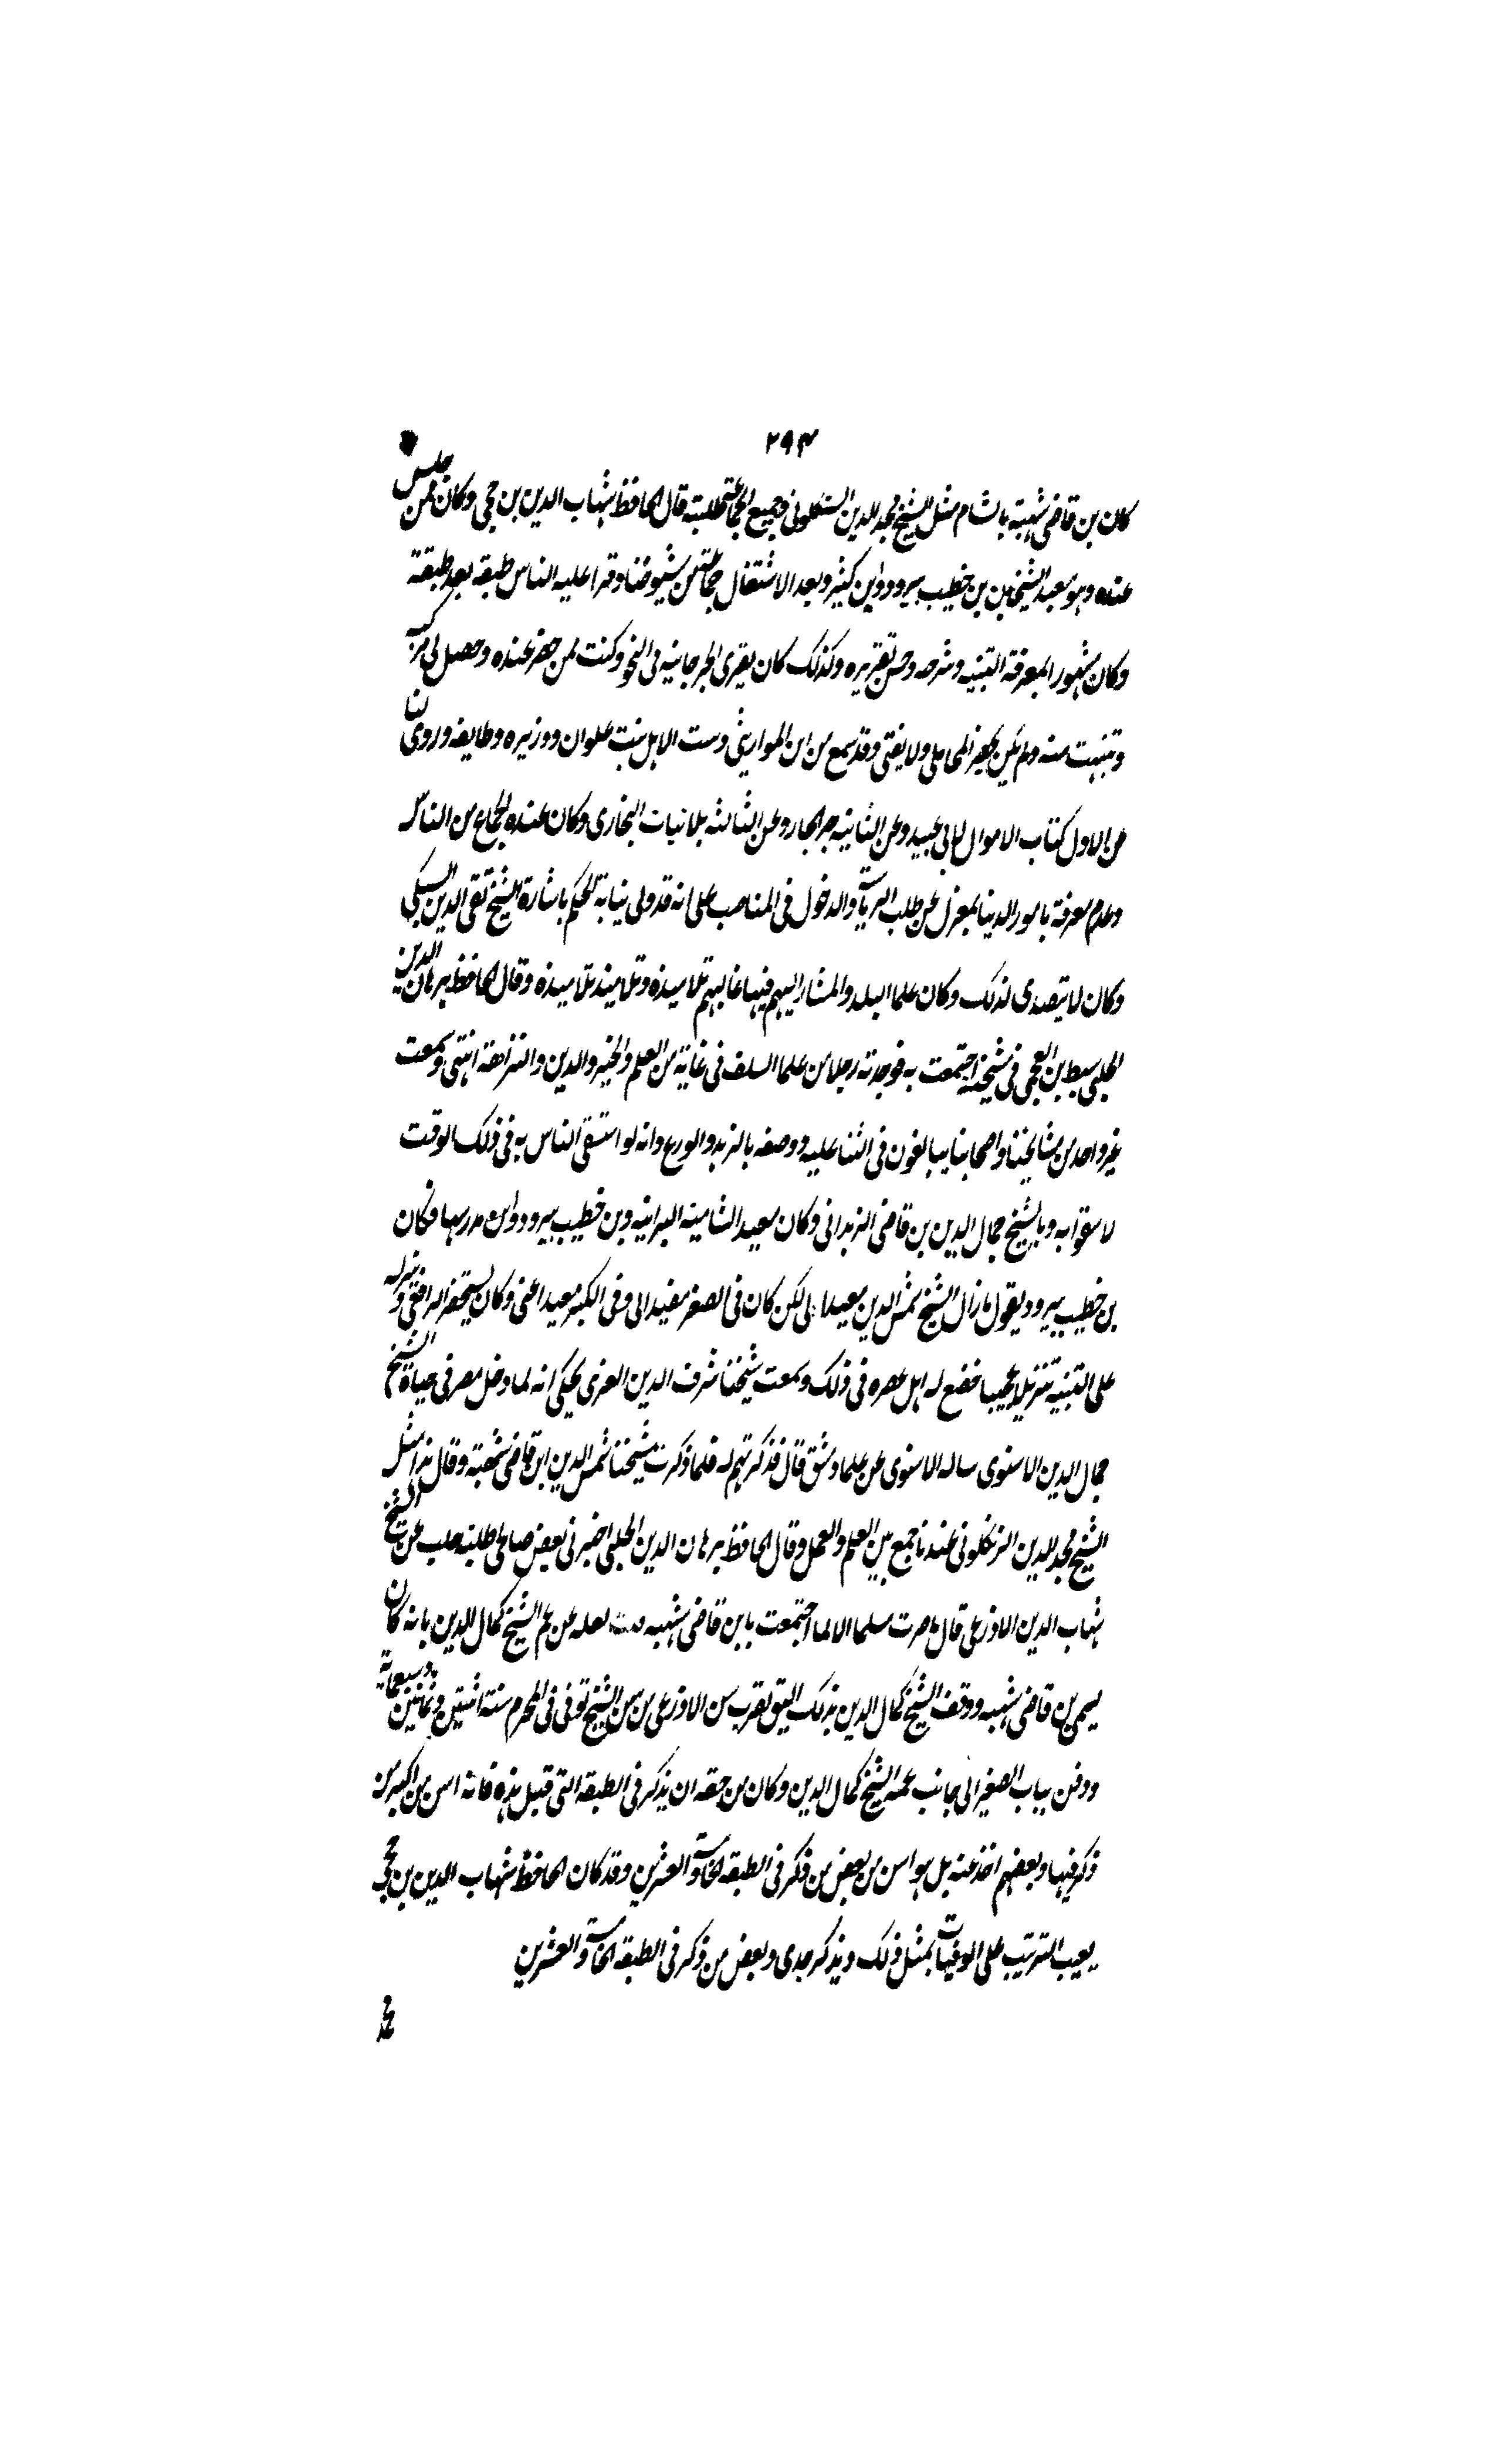 ٢٩٣
كان بن قاضى شهبة بالشام مثل الشيخ مجد الدين السنكلونى وجميع الجماعة طلبته قال الحافظ شهاب الدين بن حجى وكان ممن جلس
عنده وهو معيد الشيخ بن خطيب يبرود وابن كثير وبعد الاشتغال جماعة من شيوخنا وقرا عليه الناس طبقة بعد طبقة
وكان مشهورا بمعرفة التنبيه وشرحه وحسن تقريره وكذلك كان يقرى الجرجانية فى النحو وكنت ممن حضر عنده وحصل لى بركته
وتنبهت منه ولم يكن يحضر المحافل ولا يفتى وقد سمع من ابن الموازينى وست الاهل بنت علوان ووزيره وطايفه وروى لنا
عن الاول كتاب الاموال لابى عبيد وعن الثانيه جزء الجار وعن الثالثه ثلاثيات البخارى وكان عنده انجماع من الناس
وعدم معرفة بامور الدنيا بمعزل عن طلب الرياسة والدخول فى المناصب على انه قد ولى نيابة الحكم باشارة الشيخ تقى الدين السبكى
وكان لا يتصدى لذلك وكان علما البلد والمشار اليهم فيها غالبهم تلاميذه وتلاميذ تلاميذه وقال الحافظ برهان الدين
الحلبى سبط بن العجمى فى مشيخته اجتمعت به فوجدته رجلا من علما السلف فى غاية من العلم والخير والدين والنزاهة انتهى وسمعت
غير واحد من مشايخنا واصحابنا يبالغون فى الثنا عليه ووصفه بالزهد والورع وانه لو استسقى الناس به فى ذلك الوقت
لا سقوا به وبالشيخ جمال الدين بن قاضى الزبدانى وكان معيد الشامية البرانية وبن خطيب يبرود وابن مدرسها فكان
بن خطيب يبرود يقول ما زال الشيخ شمس الدين معيدا لى لكن كان فى الصغر مفيدا لى وفى الكبر معيدا عنى وكان يستحضر الرافعى وينزله
على التنبيه تنزيلا عجيبا خضع له اهل عصره فى ذلك وسمعت شيخنا شرف الدين الغزى يحكى انه لما دخل مصر فى حياة الشيخ
جمال الدين الاسنوى ساله الاسنوى عن علما دمشق قال فذكرتهم له فلما ذكرت شيخنا شمس الدين ابن قاضى شهبة وقال هذا مثل
الشيخ مجد الدين الزنكلونى عندنا جمع بين العلم والعمل وقال الحافظ برهان الدين الحلبى اخبرنى بعض صالحى طلبة حلب عن الشيخ
شهاب الدين الاذرعى قال ما صرت مسلما الا لما اجتمعت بابن قاضى شهبه قلت لعله عن عم الشيخ كمال الدين بانه كان
يسمى بن قاضى شهبه ووقف الشيخ كمال الدين بذلك اليق لقرب سن الاذرعى من سن الشيخ توفى فى المحرم سنة اثنتين وثمانين وسبعماية
ودفن بباب الصغير الى جانب عمه الشيخ كمال الدين وكان من حقه ان يذكر فى الطبقه التى قبل هذه فانه اسن من اكبر من
ذكر فيها وبعضهم اخذ عنه بل هو اسن من بعض من ذكر فى الطبقه الخامسة والعشرين وقد كان الحافظ شهاب الدين بن حجى
يعيب الترتيب على الوفيات بمثل ذلك ويذكر جدى وبعض من ذكر فى الطبقه الخامسة والعشرين
محمد